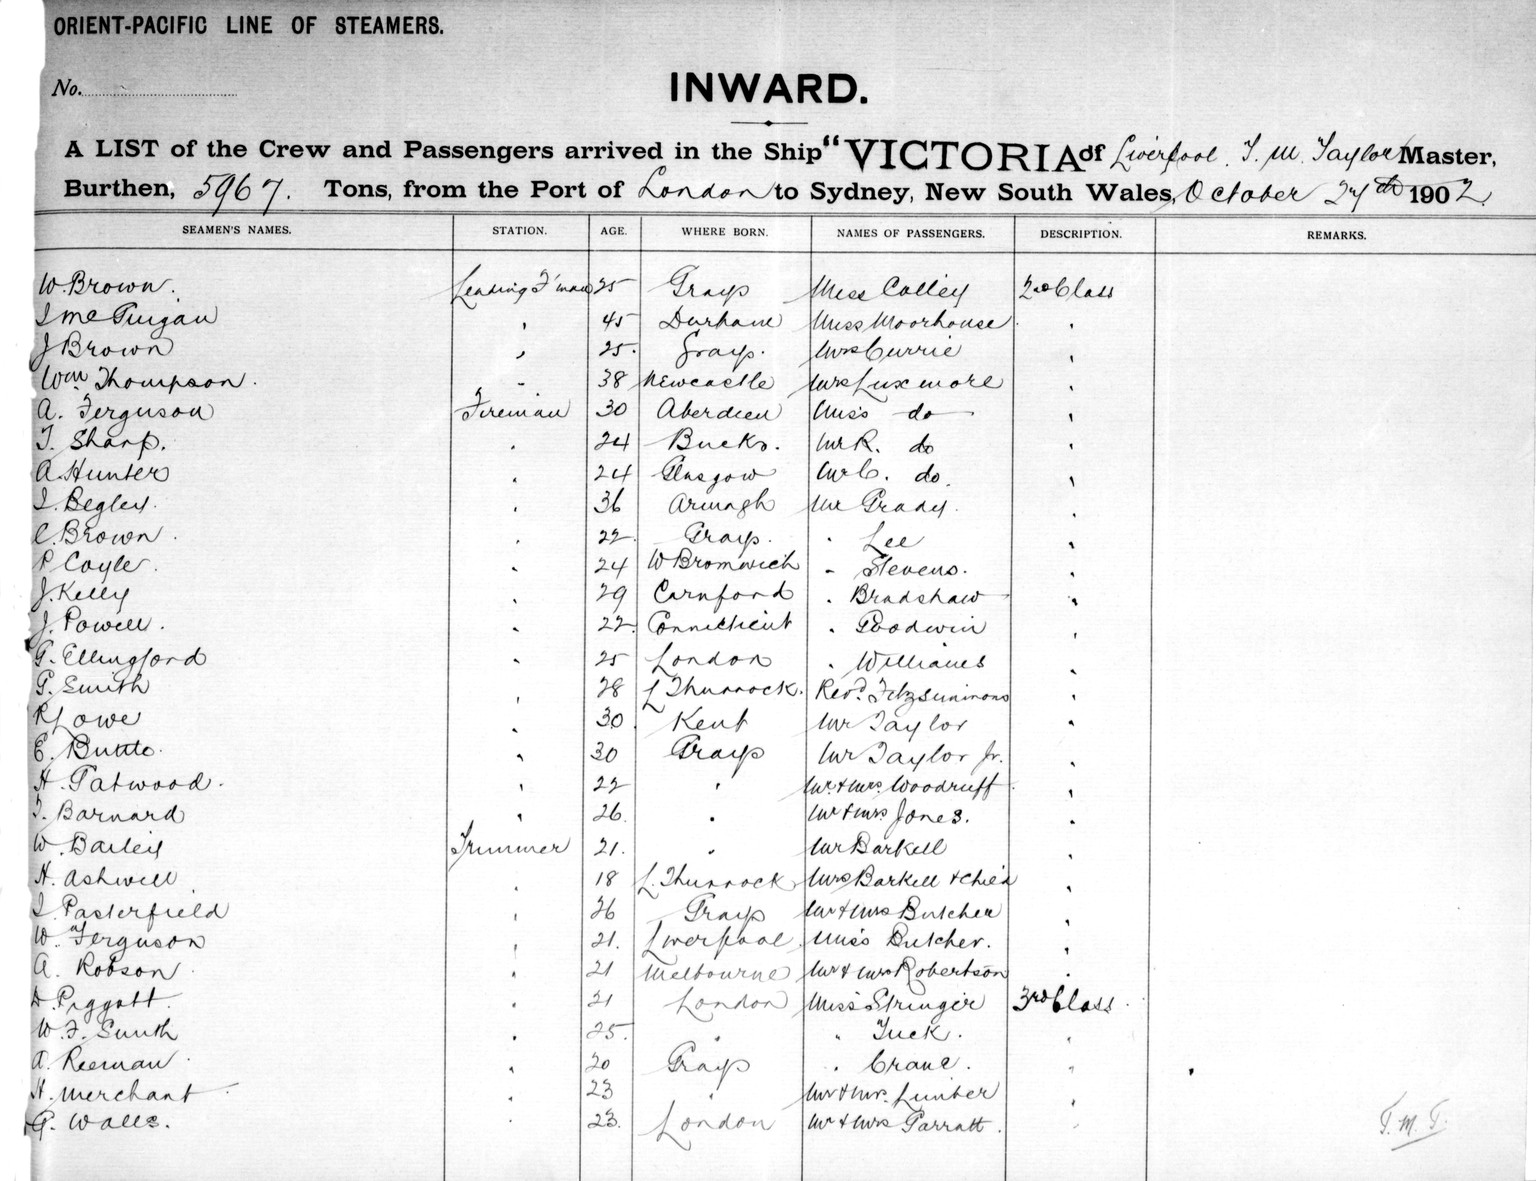 ORIENT-PACIFIC LINE OF STEAMERS.
No.
INWARD.
A LIST of the Crew and Passengers arrived in the Ship "VICTORIA of Liverpool. T. M. Taylor Master,
Burthen, 5967. Tons, from the Port of London to Sydney, New South Wales, October 27th 1902.
SEAMEN'S NAMES. STATION. AGE. WHERE BORN. NAMES OF PASSENGERS. DESCRIPTION. REMARKS.
W. Brown. Leading F'man 25 Grays Miss Colley 2nd Class
J McGuigan " 45 Durham Miss Moorhouse "
J Brown " 25. Grays. Mrs Currie "
Wm Thompson. " 38 Newcastle Mrs Luxmore "
A. Ferguson Fireman 30 Aberdeen Miss do "
T. Sharp. " 24 Bucks. Mr R. do "
A. Hunter " 24 Glasgow Mr C. do. "
J. Begley. " 36 Armagh Mr Grady. "
C. Brown. " 22 Grays. " Lee "
P Coyle. " 24 W Bromwich " Stevens. "
J. Kelly " 29 Carnford " Bradshaw "
J. Powell. " 22. Connecticut " Goodwin "
G. Ellingford " 25 London " Williams "
G. Smith " 28 L Thurrock. Revd. Fitzsimmons "
R Lowe " 30. Kent Mr Taylor "
E. " 30 Grays Mr Taylor Jr. "
H. Patwood. " 22 " Mr. & Mrs. Woodruff "
T. Barnard " 26. " Mr & Mrs Jones. "
W. Bailey Trimmer 21. " Mr Barkell "
H. Ashwell " 18 L. Thurrock Mrs Barkell & Child "
J. Pasterfield " 26 Grays Mr & Mrs Butcher "
W. Ferguson " 21. Liverpool Miss Butcher. "
A. Robson " 21 Melbourne Mr & Mrs Robertson "
D. Piggott " 21 London Miss Stringer 3rd Class
W. F. Smith " 25. " " Tuck. "
A. Reeman " 20 Grays " Crane. "
H. Merchant " 23 " Mr & Mrs. Limber "
G. Walls. " 23. London Mr & Mrs Parratt. "
T. M. T.